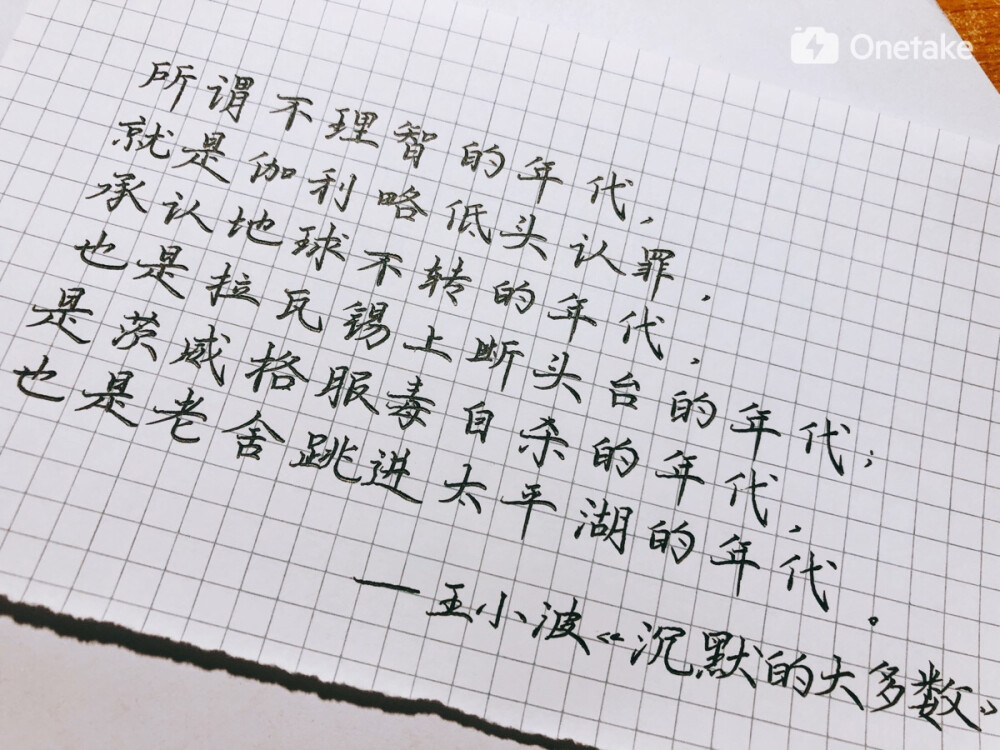 Onetake
所谓不理智的年代，
就是伽利略低头认罪，
承认地球不转的年代，
也是拉瓦锡上断头台的年代；
是茨威格服毒自杀的年代，
也是老舍跳进太平湖的年代。
—王小波《沉默的大多数》